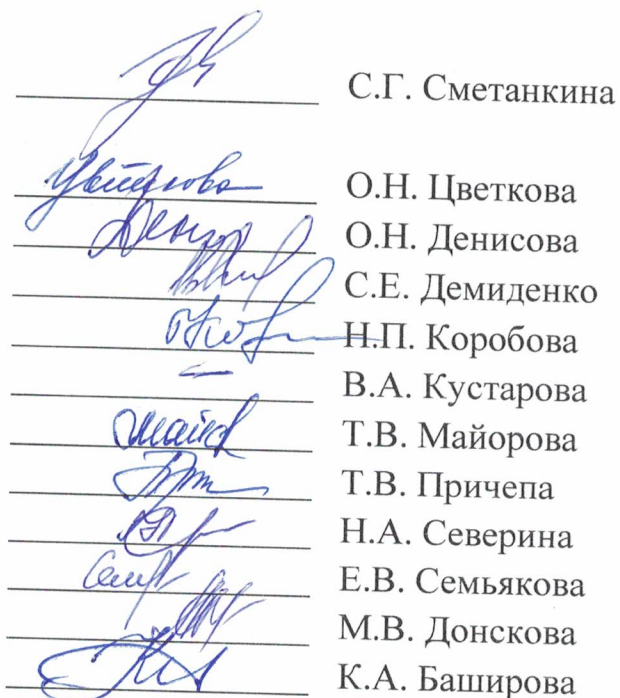 С.Г. Сметанкина
Цветкова О.Н. Цветкова
О.Н. Денисова
С.Е. Демиденко
Н.П. Коробова
В.А. Кустарова
Т.В. Майорова
Т.В. Причепа
Н.А. Северина
Е.В. Семьякова
М.В. Донскова
К.А. Баширова